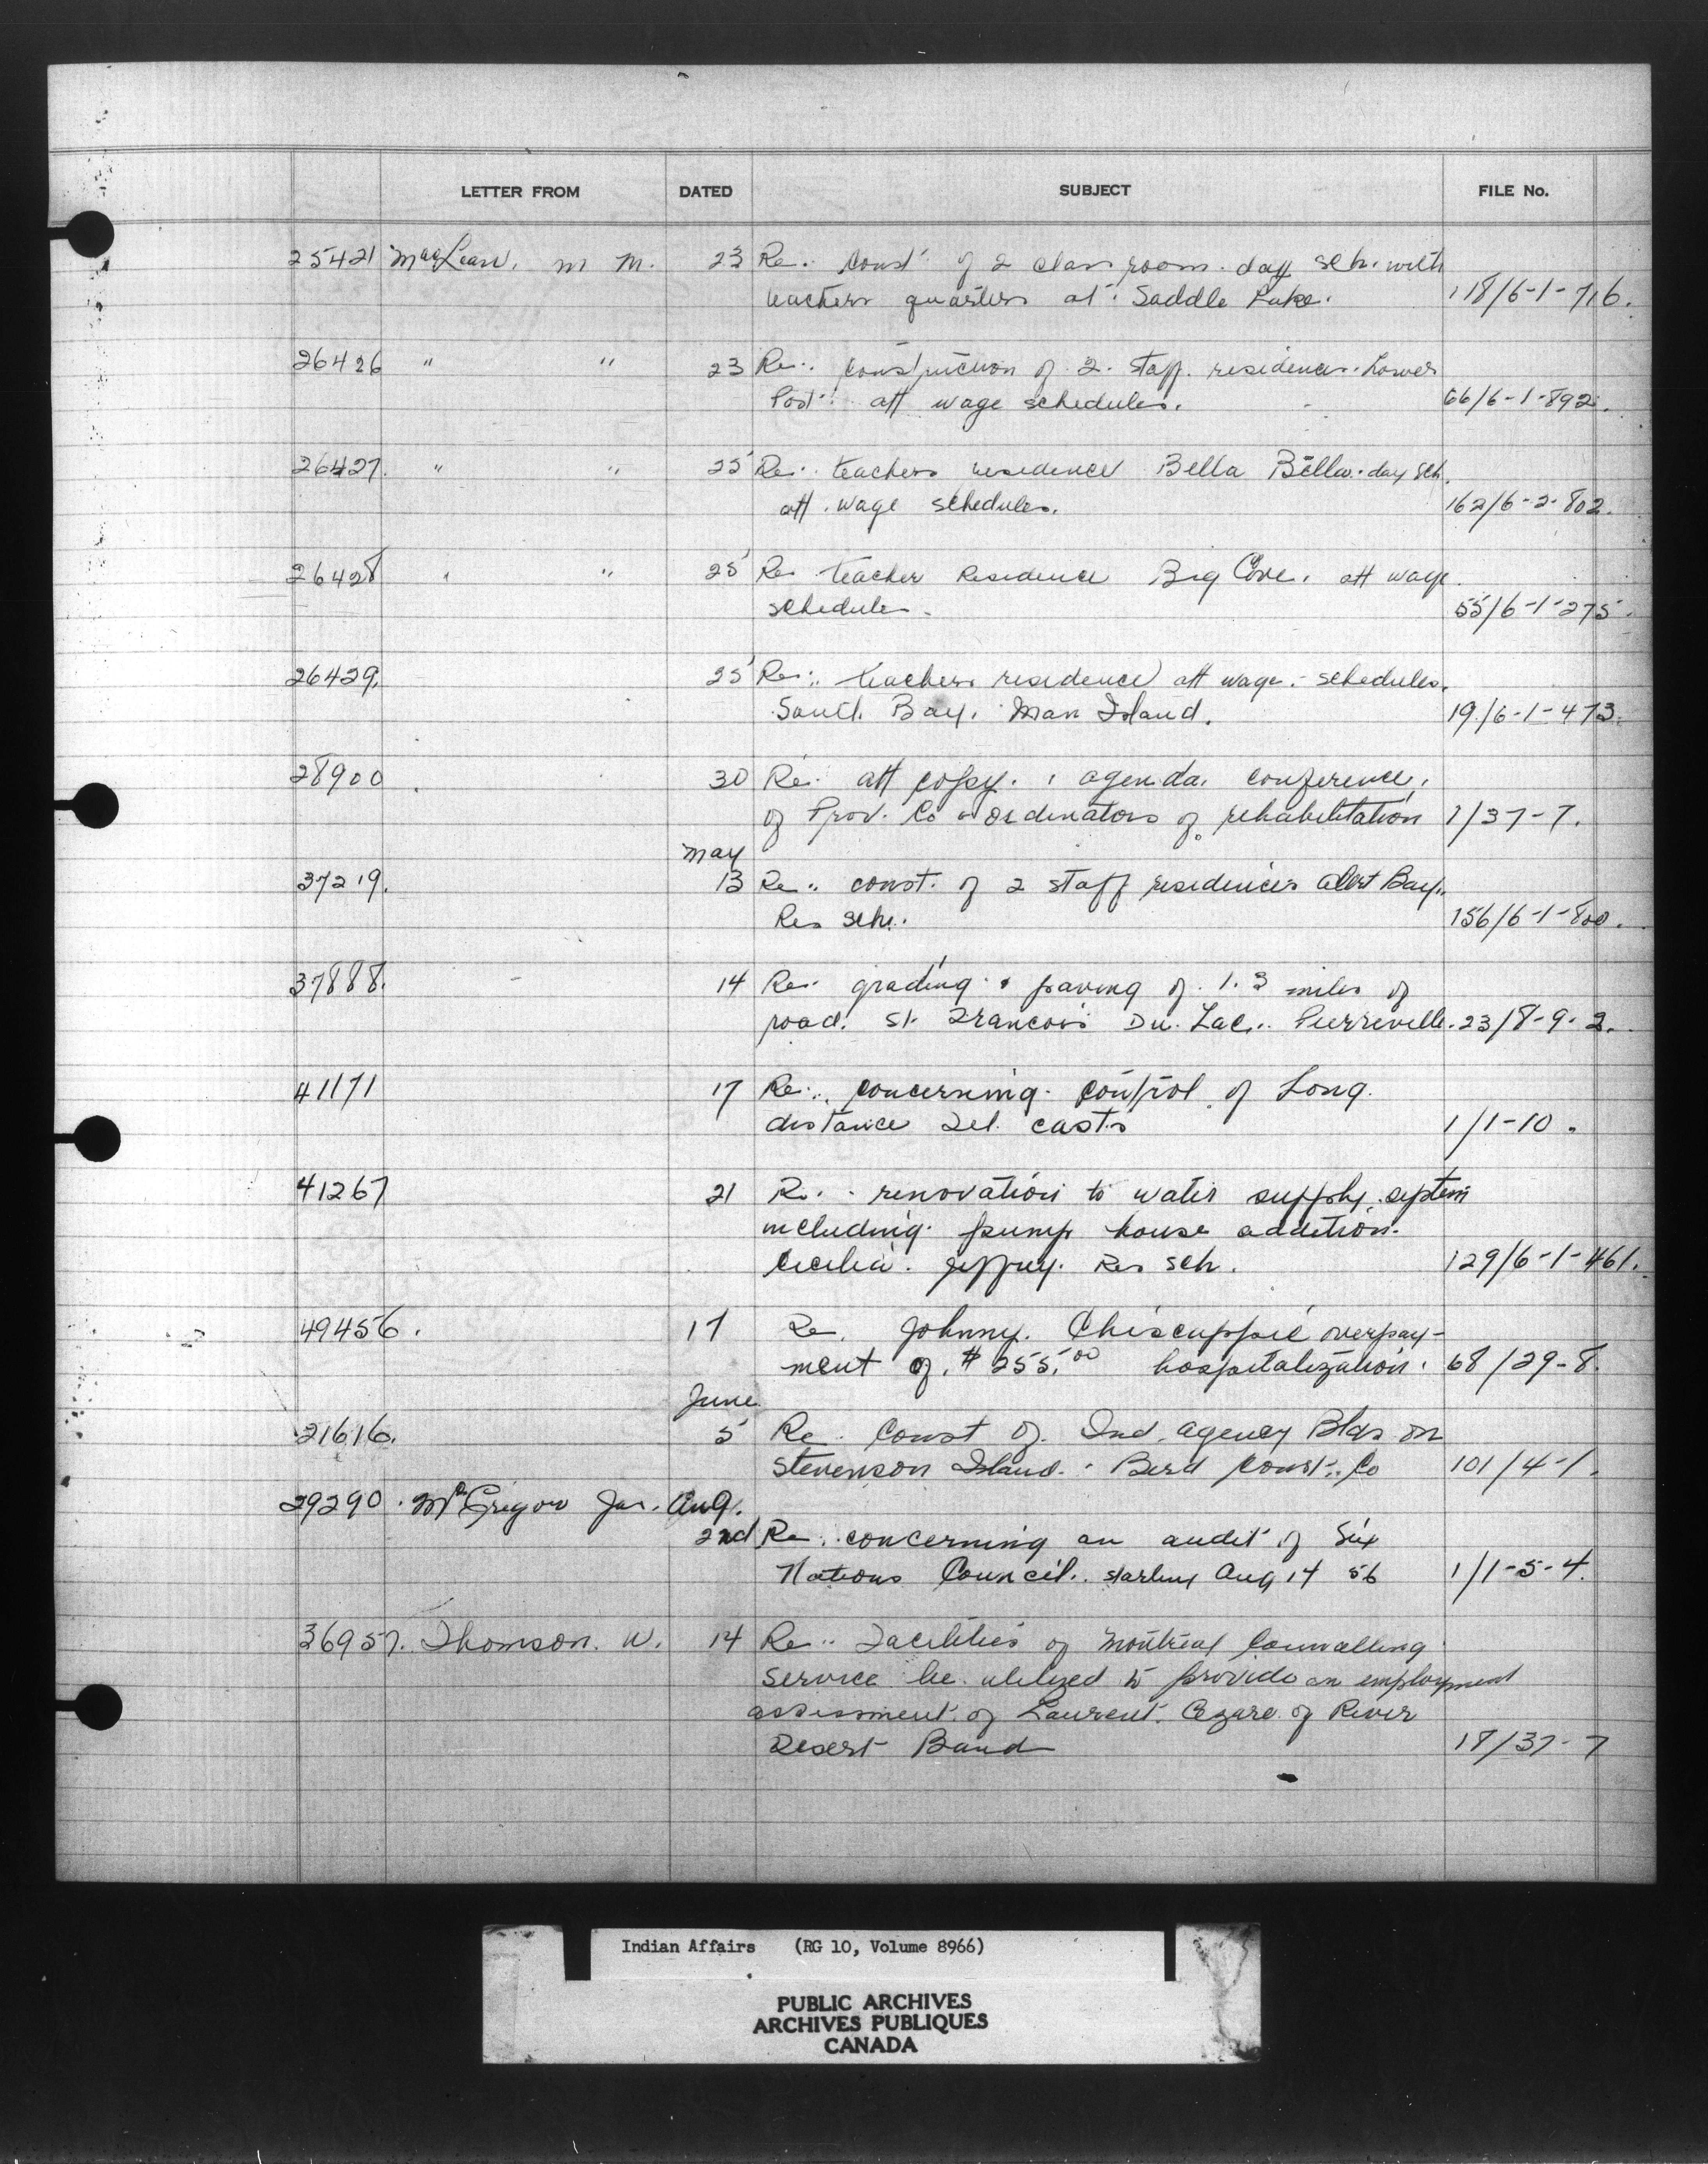 LETTER FROM DATED SUBJECT FILE No.
25421 MacLean, M M. 23 Re. Const of 2 class room day sch. with
teachers quarters at Saddle Lake. 118/6-1-716.
26426 " " 23 Re: construction of 2 staff residences. Lower
Post. att wage schedules. 66/6-1-892.
26427. " " 25 Re: teachers residence Bella Bella day sch.
att. wage schedules. 162/6-2-802.
26428 " " 25 Re teacher Residence Big Cove, att wage
schedules. 55/6-1-275.
26429. 25 Re: teachers residence att wage schedules.
South Bay. Man Island. 19/6-1-473.
28900 30 Re. att copy. agenda. conference,
of Prov. Co-ordinators of rehabilitation 1/37-7.
May
37219. 13 Re. const. of 2 staff residences Alert Bay.
Res sch. 156/6-1-800.
37888. 14 Re. grading & paving of 1.3 miles of
road. St. Francois Du. Lac. Pierreville. 23/8-9-2.
41171 17 Re. concerning control of Long
distance Tel. casts 1/1-10.
41267 21 Re. renovation to water supply system
including pump house addition.
Cecilia Jeffrey. Res sch. 129/6-1-461.
49456. 17 Re. Johnny. Chiscappie overpay-
ment of. $255.00 hospitalization. 68/29-8.
June
21616. 5 Re. Const of Ind. agency Bldgs on
Stevenson Island. Bird Const. Co 101/4-1.
29290. McGregor Jas. Aug.
2nd Re. concerning an audit of Six
Nations Council. starting Aug 14 56 1/1-5-4.
36957. Thomson. W. 14 Re. Facilities of Montreal Counselling
service be utilized to provide an employment
assessment of Laurent. Cezare of River
Desert Band 18/37-7
Indian Affairs (RG 10, Volume 8966)
PUBLIC ARCHIVES
ARCHIVES PUBLIQUES
CANADA